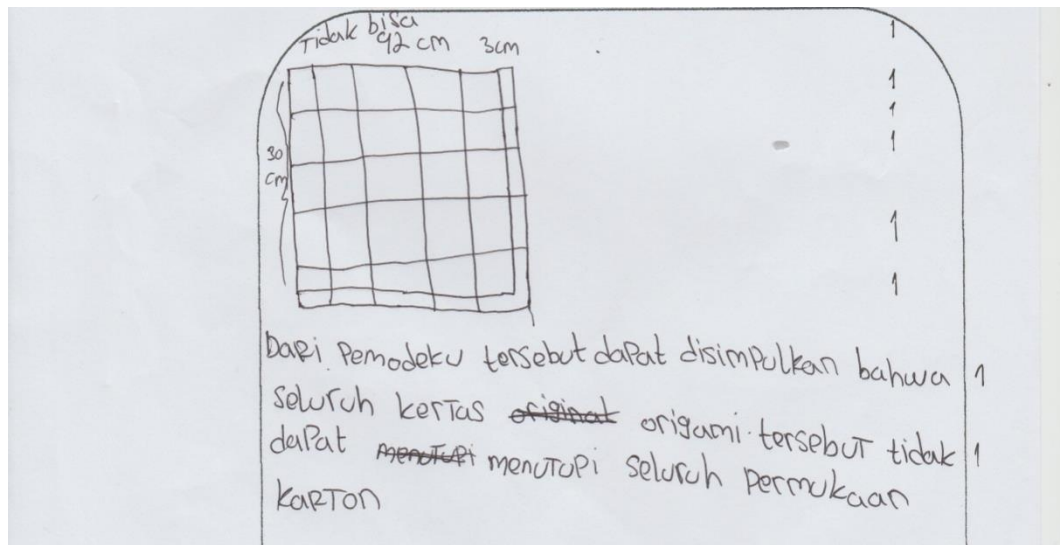 Tidak bisa
92 cm 3cm
1
1
1
1
30
cm
1
1
Dari Pemodeku tersebut dapat disimpulkan bahwa 1
seluruh kertas original origami tersebut tidak 1
dapat menutupi menutupi seluruh permukaan
karton